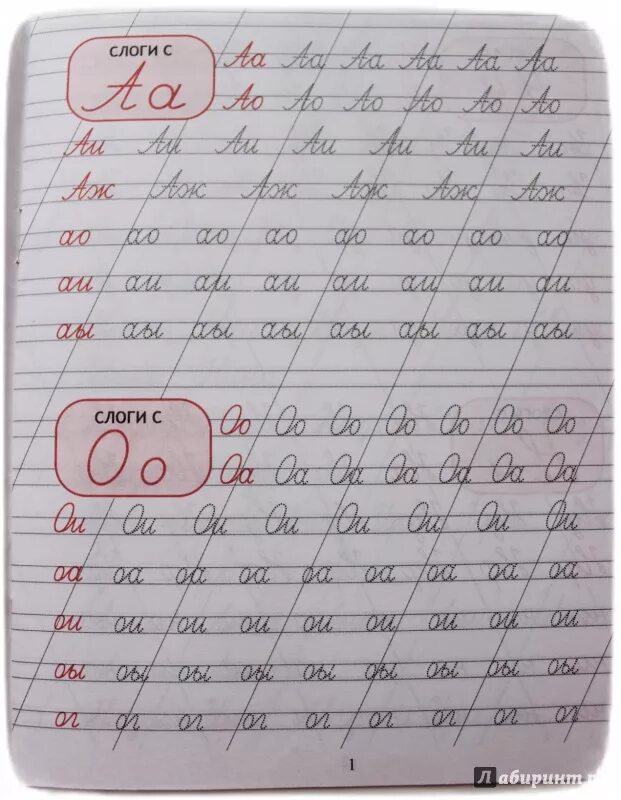 СЛОГИ С
Аа
Аа Аа Аа Аа Аа Аа
Ао Ао Ао Ао Ао Ао
Аи Аи Аи Аи Аи Аи Аи
Аж Аж Аж Аж Аж Аж
ао ао ао ао ао ао ао ао
аи аи аи аи аи аи аи аи
аы аы аы аы аы аы аы аы
СЛОГИ С
Оо
Оо Оо Оо Оо Оо Оо Оо
Оа Оа Оа Оа Оа Оа Оа
Ои Ои Ои Ои Ои Ои Ои Ои
оа оа оа оа оа оа оа оа оа
ои ои ои ои ои ои ои ои ои
оы оы оы оы оы оы оы оы оы
ог ог ог ог ог ог ог ог ог
1
Лабиринт.р